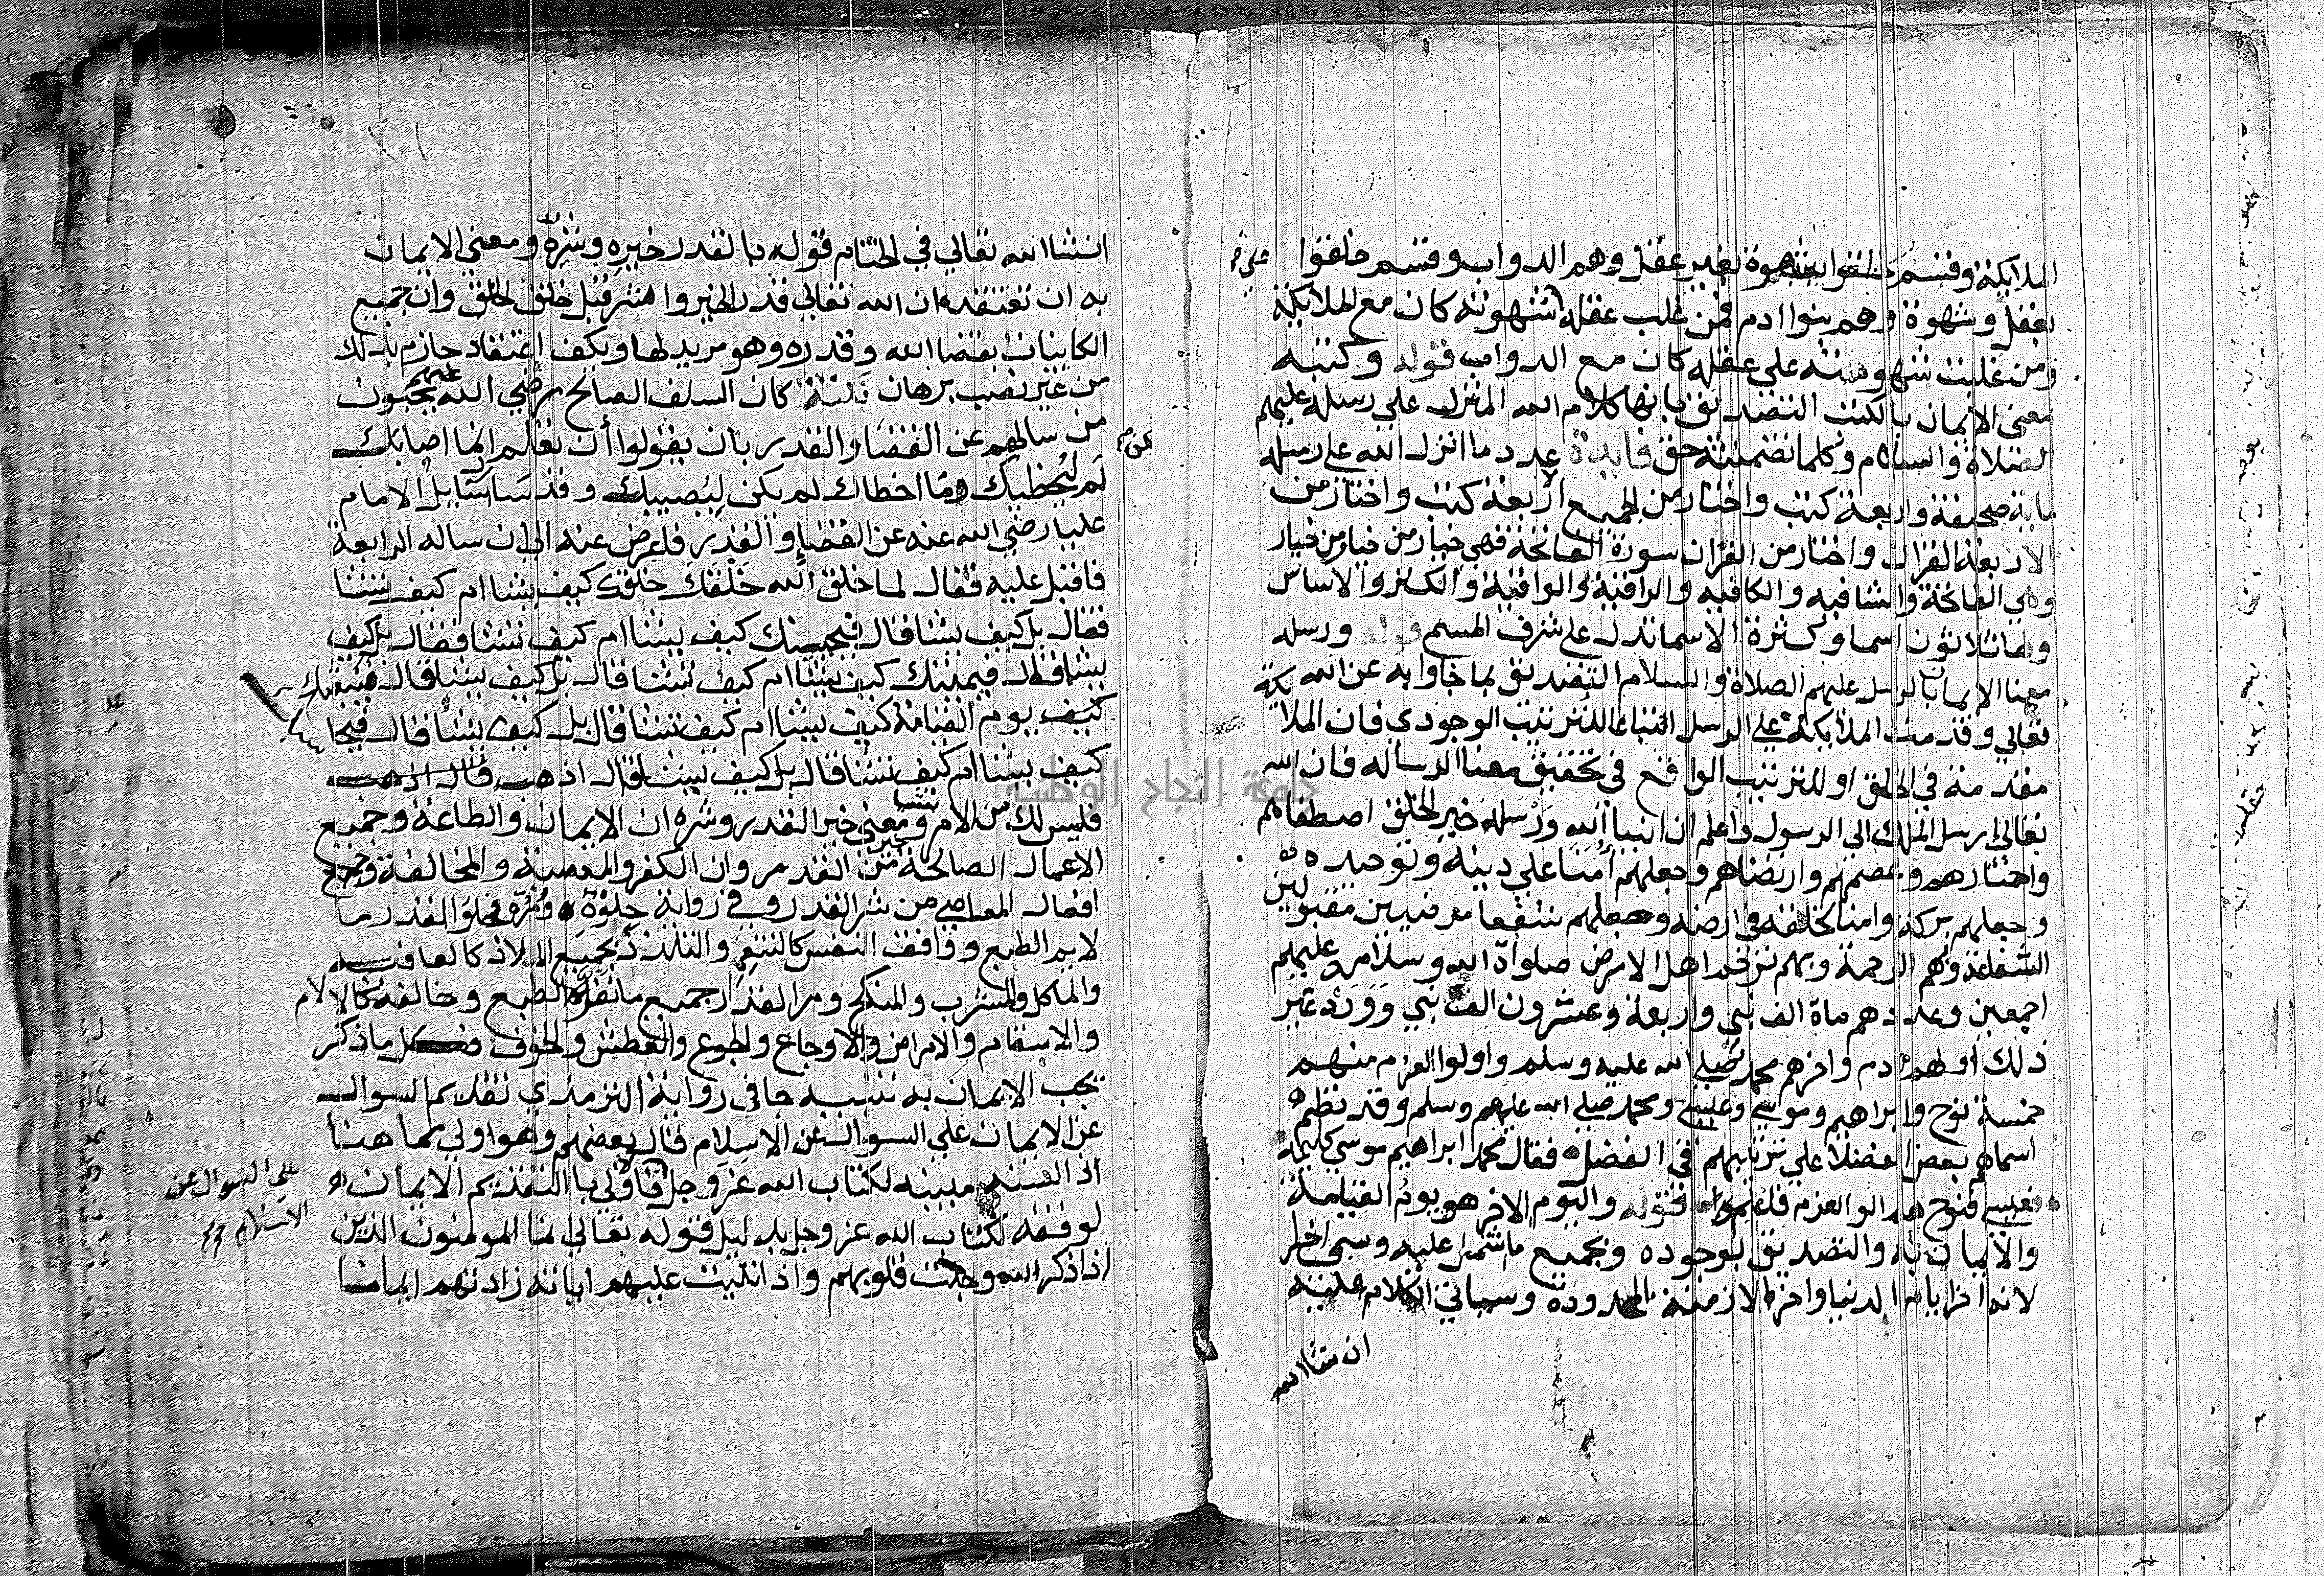 الملايكة وقسم خلقوا بشهوة بغير عقل وهم الدواب وقسم خلقوا
بعقل وشهوة وهم بنوا ادم فمن غلب عقله شهوته كان مع الملايكة
على
ومن غلبت شهوته على عقله كان مع الدواب قوله وكتبه
معنى الايمان بالكتب التصديق بانها كلام الله المنزل على رسله عليهم
الصلاة والسلام وكلما تضمنته حق فايدة عدد ما انزل الله على رسله
ماية صحيفة واربعة كتب واختار من الجميع الاربعة كتب واختار من
الاربعة القران واختار من القران سورة الفاتحة فهي خيار من خيار من خيار
وهي الفاتحة والشافيه والكافيه والراقية والوافية والكنز والاساس
ولها ثلاثون اسما وكثرة الاسما تدل على شرف المسمى قوله ورسله
معنا الايمان بالرسل عليهم الصلاة والسلام التصديق بما جاوا به عن الله
تعالي وقدمت الملايكة على الرسل اتباعا للترتيب الوجودي فان الملايكة
مقدمة في الخلق او للترتيب الواقع في تحقيق معنا الرساله فان الله
تعالى ارسل الملك الى الرسول واعلم ان انبيا الله ورسله خير الخلق اصطفاهم
واختارهم وعصمهم وارتضاهم وجعلهم امنا على دينه وتوحيده
وجعلهم بركة وامنا لخلقه في ارضه وجعلهم شفعا مرضيين مقبولين
الشفاعة وهم الرحمة وبهم ترحم اهل الارض صلواة الله وسلامه عليهم
اجمعين وعددهم ماة الف نبي واربعة وعشرون الف نبي وورد غير
ذلك اولهم ادم واخرهم محمد صلى الله عليه وسلم واولوا العزم منهم
خمسة نوح وابراهيم وموسي وعيسي ومحمد صلي الله عليهم وسلم وقد نظم
اسماهم بعض الفضلا علي ترتيبهم في الفضل فقال محمد ابراهيم موسي كليمه
فعيسي فنوح هم الوا العزم فاعلم قوله واليوم الاخر هو يوم القيامة
والايمان به والتصديق بوجوده وبجميع ما اشتمل عليه وسمي اخر
لانه اخر ايام الدنيا واخر الازمنة المحدودة وسياتي الكلام عليه
ان شا الله
انشا الله تعالي في الختام قوله بالقدر خيره وشره ومعني الايمان
به ان تعتقد ان الله تعالي قدر الخير والشر قبل خلق الخلق وان جميع
الكاينات بقضا الله وقدره وهو مريد لها ويكفي اعتقاد جازم بذلك
من غير نصب برهان كان السلف الصالح رضي الله عنهم يجيبون
من سالهم عن القضا والقدر بان يقولوا أن تعلم انما اصابك
لم ليخطيك وما اخطاك لم يكن ليصيبك وقد سأل سايل الامام
عليا رضي الله عنه عن القضا والقدر فاعرض عنه الى ان ساله الرابعة
فاقبل عليه فقال لما خلق الله خلقك خلقك كيف يشا ام كيف تشا
فقال بل كيف يشا قال فيحييك كيف يشا ام كيف تشا فقال بل كيف
يشا قال فيميتك كيف يشا ام كيف تشا قال بل كيف يشا قال فيبعثك
كيف يوم القيامة كيف يشا ام كيف تشا قال بل كيف يشا قال
كيف يشا ام كيف تشا قال بل كيف يشا قال اذهب قال اذهب
فليس لك من الامر شيا ومعني خير القدر وشره ان الايمان والطاعة وجميع
الاعمال الصالحة من خير القدر وان الكفر والمعصية والمخالفة وجميع
افعال المعاصي من شر القدر وفي رواية حلوه ومره فحلو القدر ما
لايم الطبع ووافق النفس كالتنعم والتلذذ بجميع الملاذ كالعافيه
والماكل والمشرب والمنكح ومر القدر جميع ما نفر الطبع وخالفه كالالام
والاسقام والامراض والاوجاع والجوع والعطش والخوف وكل ما ذكر
يجب الايمان به تنبيه جا في رواية الترمذي تقديم السوال
عن الايمان علي السوال عن الاسلام قال بعضهم وهو اولي مما هنا
اذ السنة مبينه لكتاب الله عز وجل فاولي بالتقديم الايمان
على السوال عن
الاسلام
لوفقه لكتاب الله عز وجل بدليل قوله تعالى انما المومنون الذين
اذا ذكر الله وجلت قلوبهم واذا تليت عليهم اياته زادتهم ايمانا
جامعة النجاح الوطنية